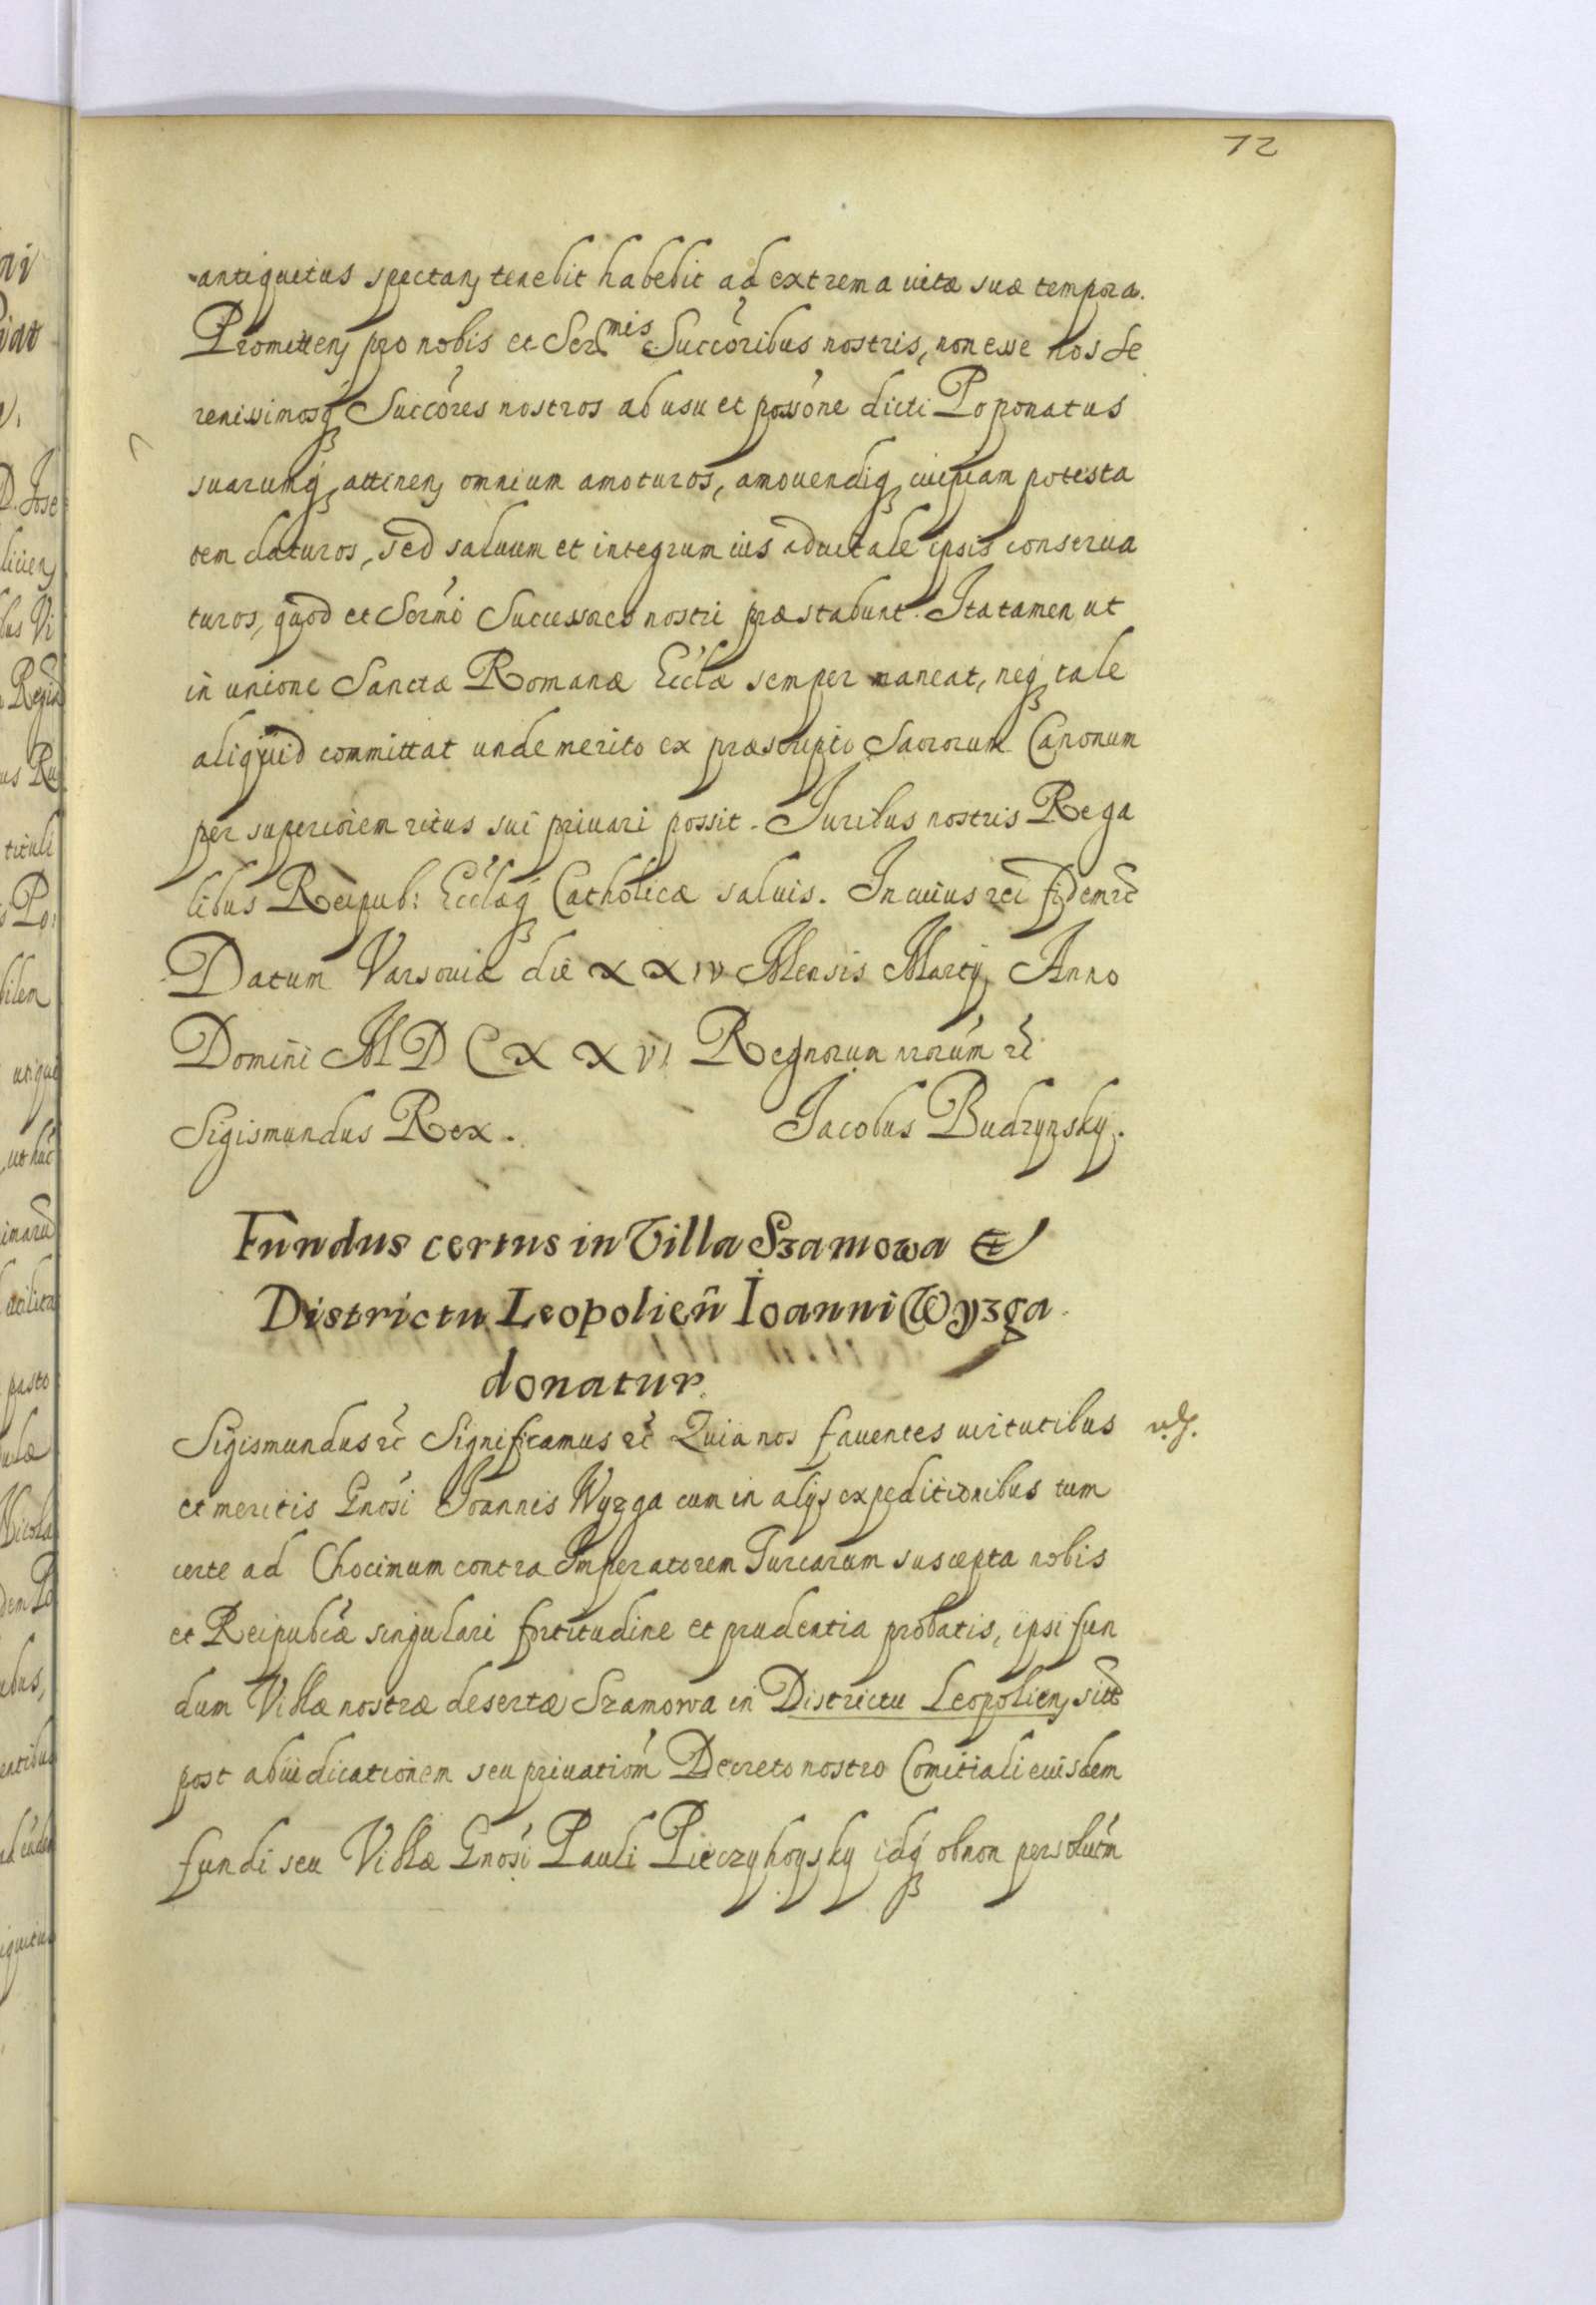 72
antiquitus spectanꝭ tenebit habebit ad extrema uitæ suæ tempora.
Promittenꝭ pro nobis et Ser^mis Succoribus nostris, non esse nos Se
renissimosq́ꝫ Succores nostros ab usu et possone dicti Poponatus
suarumq́ꝫ attinenꝭ omnium amoturos, amouendiq́ꝫ cuipiam potesta
tem daturos, sed saluum et integrum ius aduitale ipsis conserua
turos, quod et Sermi Successores nostri præstabunt. Ita tamen ut
in unione Sanctæ Romanæ Ecclæ semper maneat, neqꝫ tale
aliquid committat unde merito ex præscripto Sacrorum Canonum
per superiorem ritus sui priuari possit. Iuribus nostris Rega
libus Reipub: Ecclæq́ꝫ Catholicæ saluis. In cuius rei fidem ꝛc̃
Datum Varsouiæ die XXIV Mensis Martij Anno
Domini MDCXXVI Regnorum nrorum ꝛc̃
Sigismundus Rex. Jacobus Budzynsky.
Fundus certus in Villa Szamowa et
Districtu Leopolień Ioanni Wyzga
donatur.
Sigismundus ꝛc̃ Significamus ꝛc̃ Quia nos fauentes uirtutibus
et meritis Gnosi Joannis Wyzga cum in alijs expeditionibus tum
certe ad Chocimum contra Imperatorem Turcarum suscepta nobis
et Reipublcæ singulari fortitudine et prudentia probatis, ipsi fun
dum Villæ nostræ desertæ Szamowa in Districtu Leopolienꝭ sitt
post abiudicationem seu priuatiom Decreto nostro Comitiali eiusdem
fundi seu Villæ Gnosi Pauli Pieczyhoysky idq́ꝫ ob non persolutm